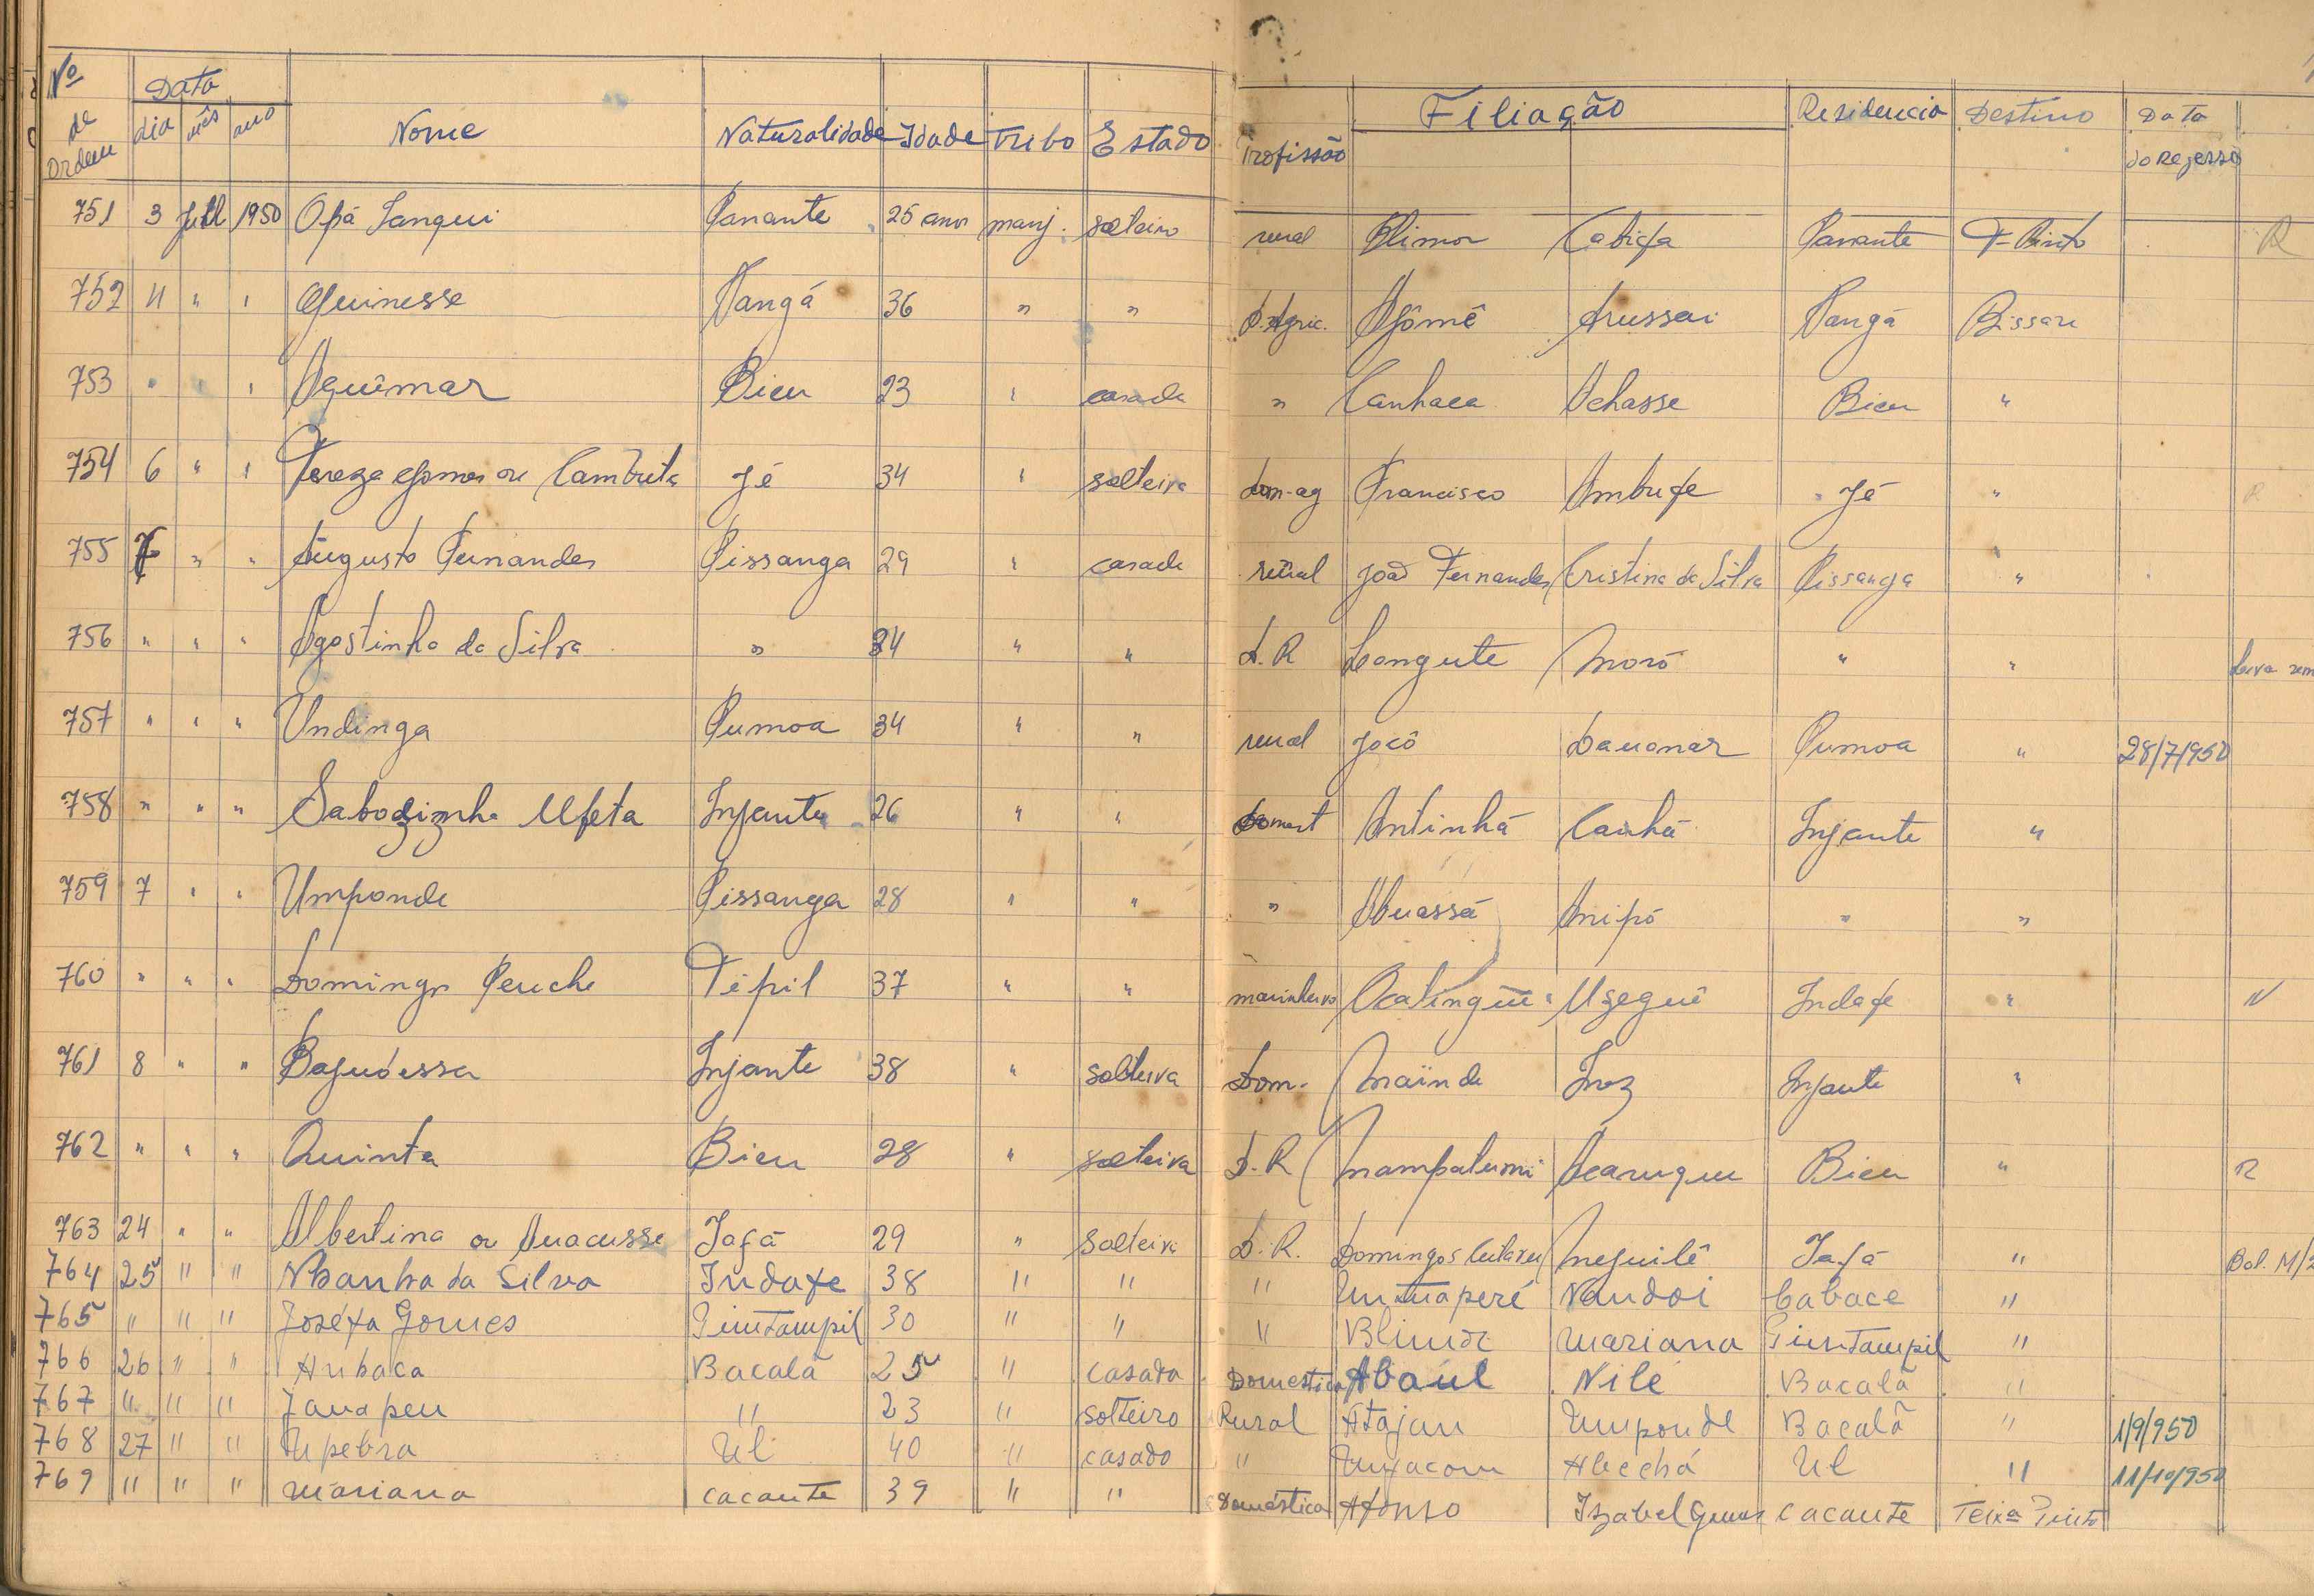 Nº de Ordem Data dia mês ano Nome Naturalidade Idade Tribo Estado Profissão Filiação Residencia Destino Data do Regresso
751 3 Jul 1950 Opá Sanqui Panante 25 anos manj. solteiro rural Blimor Cabifa Panante T. Pinto R
752 4 " " Quinesse Vangá 36 " " D. Agric. Ajômê Arussai Vangá Bissau
753 " " " Aguimar Bieu 23 " casada " Canhaca Achasse Bieu "
754 6 " " Tereza Gomes ou Cambuta Jé 34 " solteira Dom-ag Francisco Ambufe Jé " R
755 7 " " Augusto Fernandes Pissanga 29 " casado rural João Fernandes Cristina da Silva Pissanga "
756 " " " Agostinha da Silva " 34 " " D. R Longute Moró " "
757 " " " Undinga Pumoa 34 " " rural Jocô Dauanar Pumoa " 28/7/950
758 " " " Sabozinha Ufeta Injante 26 " " Domest Antinhá Canhá Injante "
759 7 " " Umponde Pissanga 28 " " " Abuassá Anipó " "
760 " " " Domingos Peuche Tépil 37 " " marinheiro Ocatingui Uzeguê Indafe " N
761 8 " " Bajudessa Injante 38 " solteira Dom. Maïnda Inez Injante "
762 " " " Quinta Bieu 28 " solteira D. R Mampatumi Acaruqui Bieu " R
763 24 " " Albertina ou Auacusse Jafá 29 " solteira D. R. Domingos Meguilê Jafá "
764 25 " " Nhanha da Silva Indafe 38 " " " Untuaperé Nandoi Cabace "
765 " " " Joséfa Gomes Pintampil 30 " " " Blimor Mariana Pintampil "
766 26 " " Anbaca Bacalã 25 " casada Domestica Abaúl Nile Bacalã "
767 " " " Janapeu " 23 " solteiro Rural Atajan Umponde Bacalã " 1/9/950
768 27 " " Upebra Ul 40 " casado " Unfacom Abechá Ul " 11/10/950
769 " " " Mariana Cacante 39 " " Doméstica Afonso Izabel Gomes Cacante Teixª Pinto